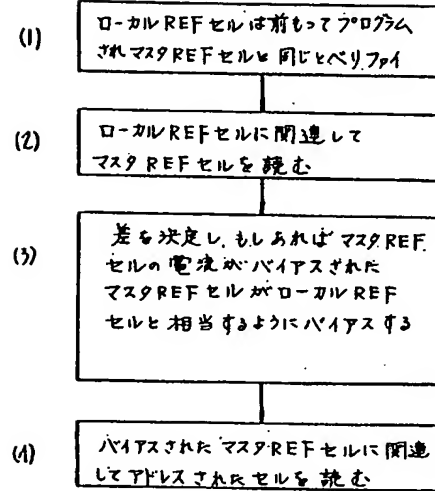 (1)
ローカルREFセルは前もってプログラム
されマスタREFセルと同じとベリファイ
(2)
ローカルREFセルに関連して
マスタREFセルを読む
(3)
差を決定し、もしあればマスタREF
セルの電流がバイアスされた
マスタREFセルがローカルREF
セルと相当するようにバイアスする
(4)
バイアスされたマスタREFセルに関連
してアドレスされたセルを読む